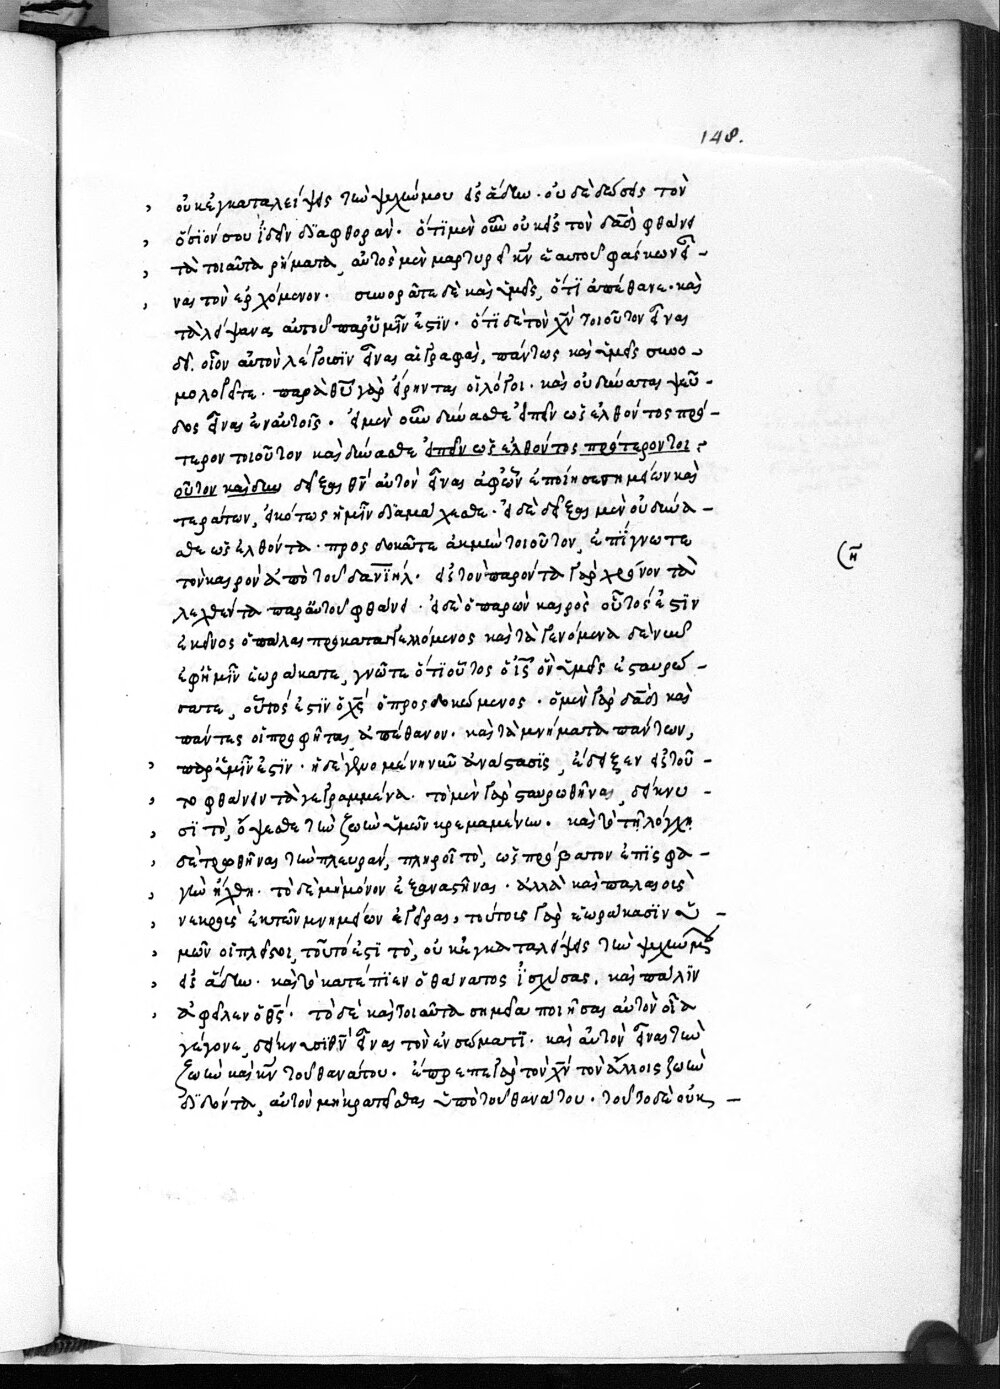 148.
οὐκ ἐγκαταλείψεις τὴν ψυχήν μου εἰς ἅδην · οὐδὲ δώσεις τὸν
ὅσϊόν σου ἰδεῖν διαφθοράν · ὅτι μὲν οὖν οὐκ εἰς τὸν δᾱδ φθάνει
τὰ τοιαῦτα ρήματα, αὐτὸς μὲν μαρτυρεῖ καὶ ἑαυτοῦ φάσκων εἶ-
ναι τὸν ἐρχόμενον · συνορᾶτε δὲ καὶ ὑμεῖς, ὅτι ἀπέθανε · καὶ
τὰ λείψανα αὐτοῦ παρ' ὑμῖν ἐστιν · ὅτι δὲ τὸν χν̄ τοιοῦτον εἶναι
δεῖ, οἷον αὐτὸν λέγουσιν εἶναι αἱ γραφαὶ, πάντως καὶ ὑμεῖς συνο-
μολογεῖτε · παρὰ θῡ γὰρ εἴρηνται οἱ λόγοι · καὶ οὐ δύναται ψεῦ-
δος εἶναι ἐν αὐτοῖς · εἰ μὲν οὖν δύνασθε εἰπεῖν ὡς ἐλθόντος πρό-
τερον τοιοῦτον καὶ δύνασθε εἰπεῖν ὡς ἐλθόντος πρότερον τοι-
οῦτον καὶ δυν δεῖξαι θν̄ αὐτὸν εἶναι ἀφ' ὧν ἐποίησεν σημείων καὶ
τεράτων, εἰκότως ἡμῖν διαμάχεσθε · εἰ δὲ δεῖξαι μὲν οὐ δύνα-
σθε ὡς ἐλθόντα · προσδοκᾶτε ἀκμὴν τοιοῦτον, ἐπίγνωτε
τὸν καιρὸν ἀπὸ τοῦ δανϊήλ · εἰς τὸν παρόντα γὰρ χρόνον τὰ
λεχθέντα παρ' αὐτοῦ φθάνει · εἰ δὲ ὁ παρὼν καιρὸς οὗτός ἐστιν
ἐκεῖνος ὁ πάλαι προκαταγγελλόμενος καὶ τὰ γενόμενα δὲ νῦν
ἐφ' ἡμῖν ἑωράκατε, γνῶτε ὅτι οὗτος ὁ ῑς ὃν ὑμεῖς ἐσταυρώ-
σατε, οὗτός ἐστιν ὁ χς̄ ὁ προσδοκώμενος · ὁ μὲν γὰρ δᾱδ καὶ
πάντες οἱ προφῆται ἀπέθανον · καὶ τὰ μνήματα πάντων,
παρ' ὑμῖν ἐστιν · ἡ δὲ γενομένη νῦν ἀνάστασις, ἔδειξεν εἰς τοῦ-
το φθάνειν τὰ γεγραμμένα · τὸ μὲν γὰρ σταυρωθῆναι, δείκνυ-
σι τὸ, ὄψεσθε τὴν ζωὴν ὑμῶν κρεμαμένην · καὶ τὸ τῇ λόγχῃ
δὲ τρωθῆναι τὴν πλευράν, πληροῖ τὸ, ὡς πρόβατον ἐπὶ σφα-
γὴν ἤχθη · τὸ δὲ μὴ μόνον ἐξαναστῆναι · ἀλλὰ καὶ παλαιοὺς
νεκροὺς ἐκ τῶν μνημείων ἐγεῖραι, τούτοις γὰρ ἑωράκασιν ὑ-
μῶν οἱ πλείους, τοῦτό ἐστι τὸ, οὐκ ἐγκαταλείψεις τὴν ψυχήν μου
εἰς ἅδην · καὶ τὸ κατέπιεν ὁ θάνατος ἰσχύσας, καὶ πάλιν
ἀφεῖλεν ὁ θς̄ · τὸ δὲ καὶ τοιαῦτα σημεῖα ποιῆσαι αὐτὸν οἷα
γέγονε, δείκνυσι θν̄ εἶναι τὸν ἐν σώματι · καὶ αὐτὸν εἶναι τὴν
ζωὴν καὶ κν̄ τοῦ θανάτου · ἔπρεπε γὰρ τὸν χν̄ τὸν ἄλλοις ζωὴν
διδόντα, αὐτὸν μὴ κρατεῖσθαι ὑπὸ τοῦ θανάτου · τοῦτο δὲ οὐκ -